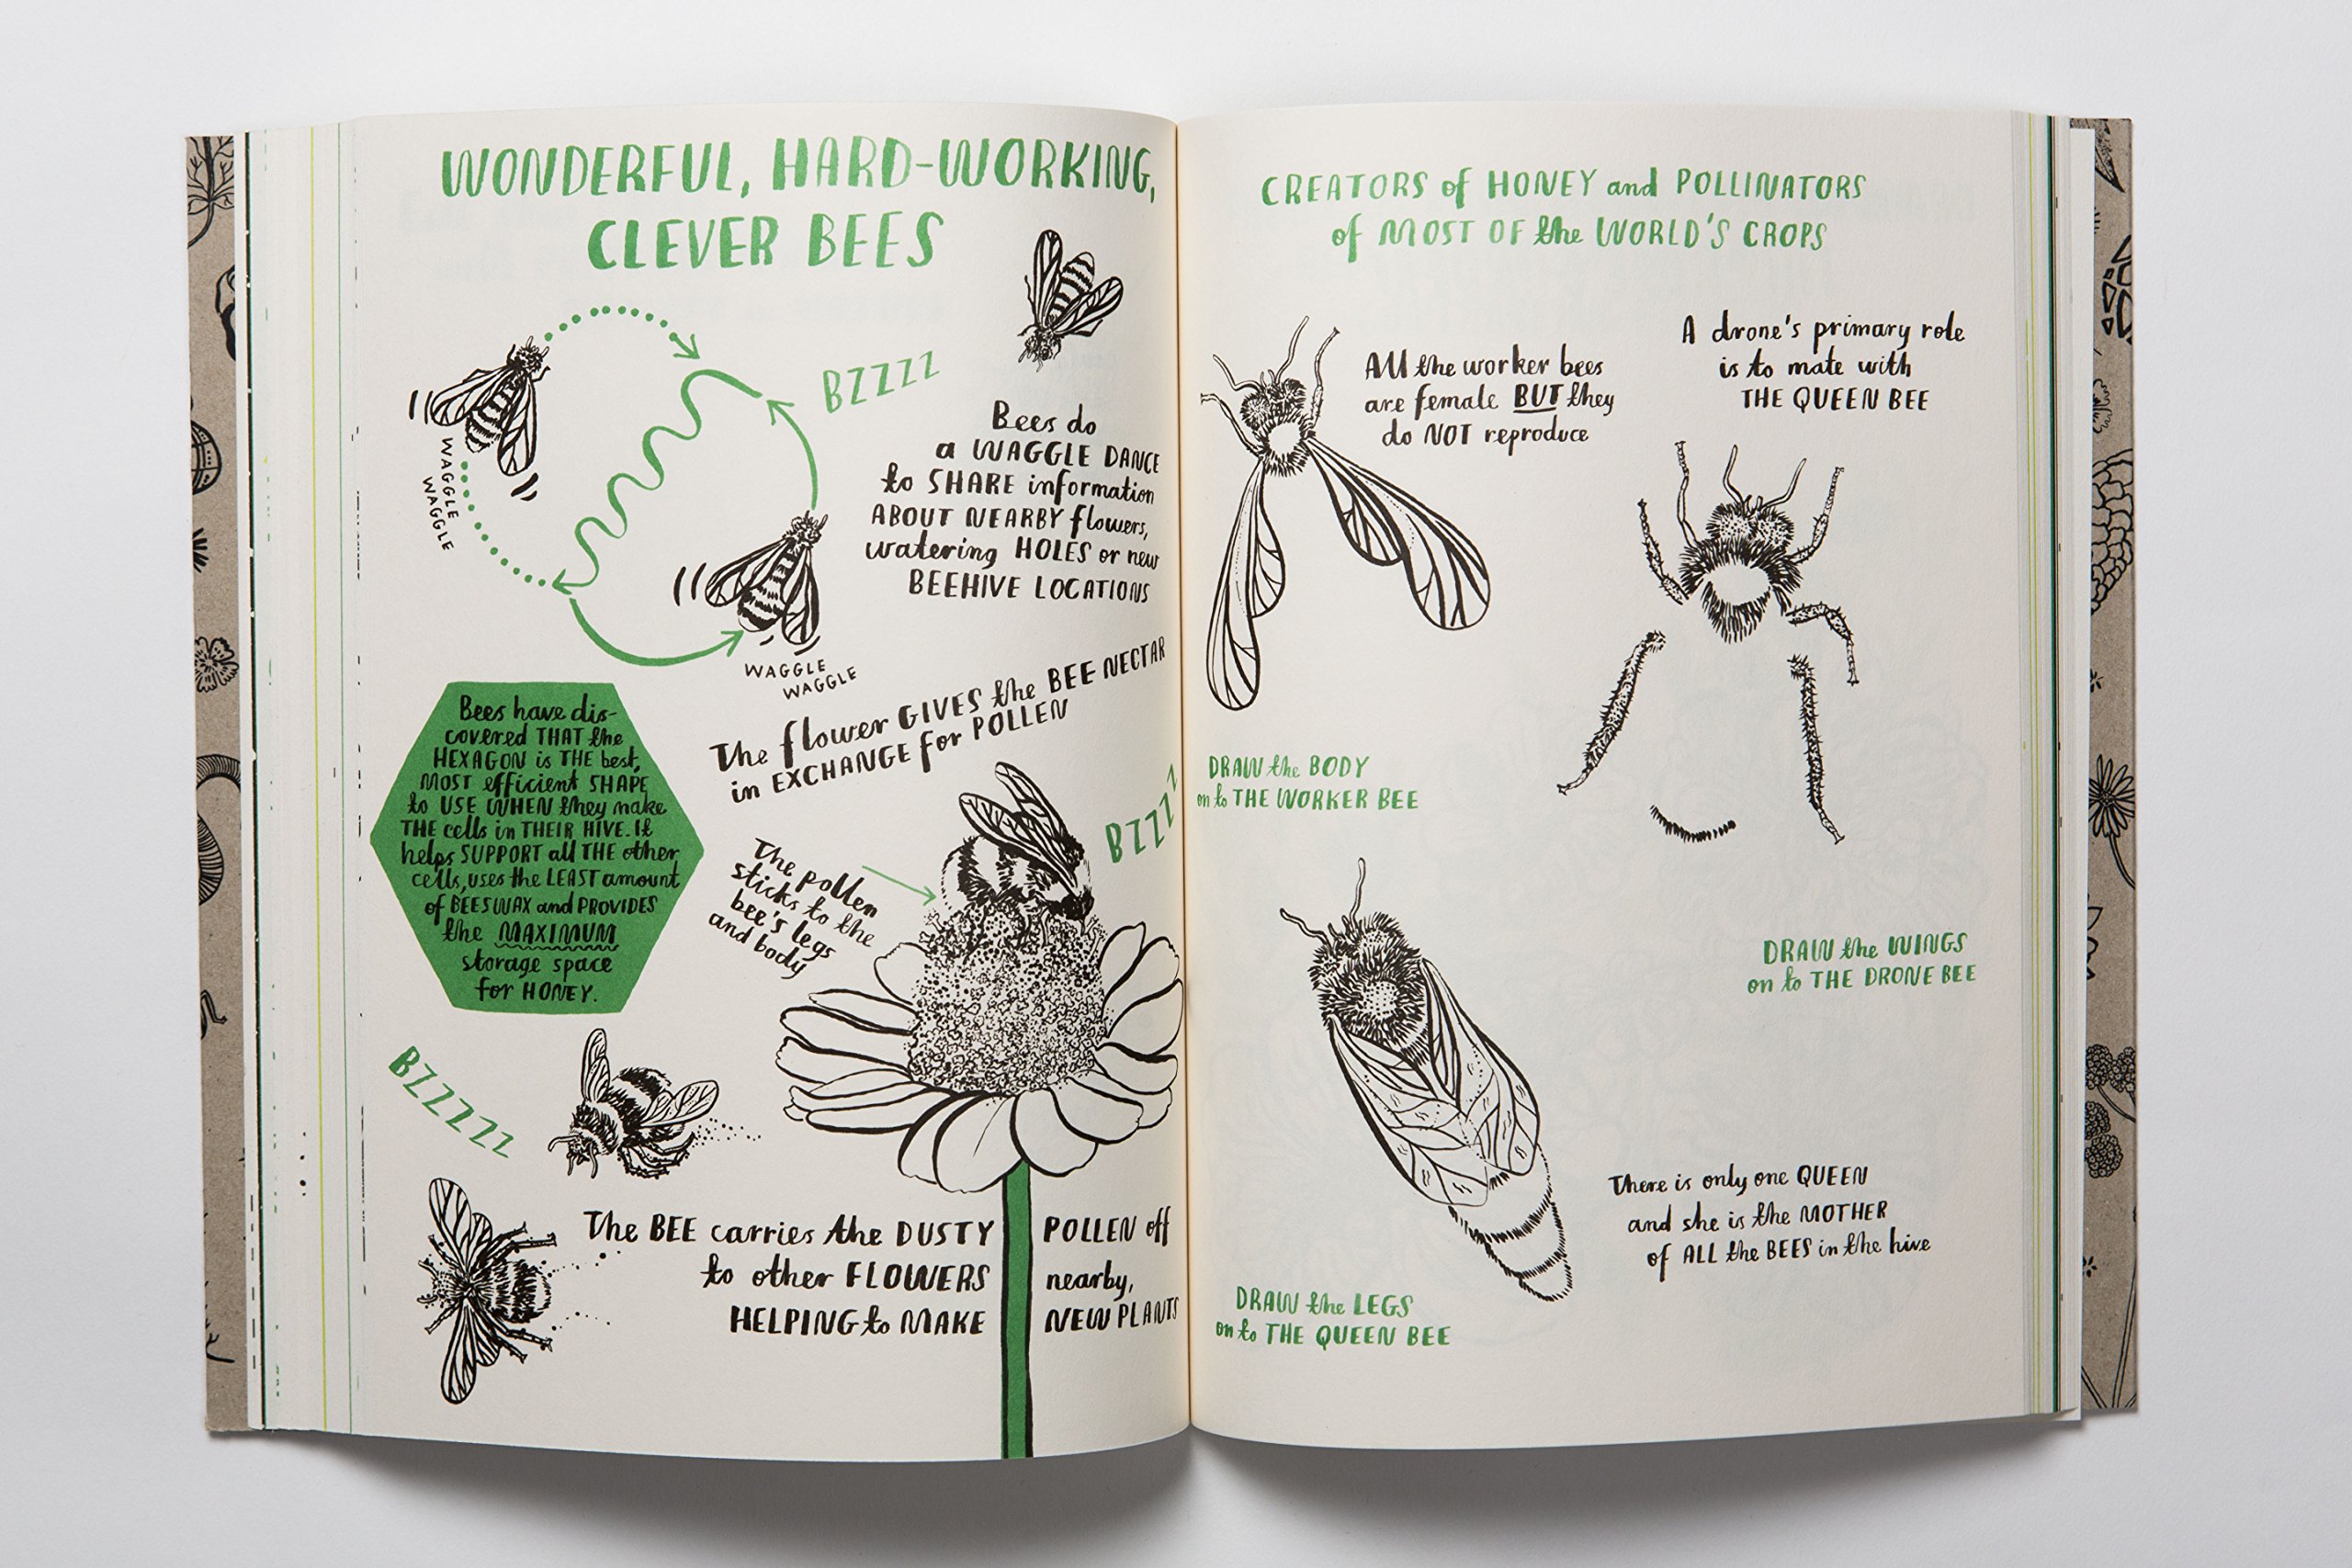 WONDERFUL, HARD-WORKING,
CLEVER BEES
BZZZZ
WAGGLE
WAGGLE
Bees do
a WAGGLE DANCE
to SHARE information
ABOUT NEARBY flowers,
watering HOLES or new
BEEHIVE LOCATIONS
WAGGLE
WAGGLE
Bees have dis-
covered THAT the
HEXAGON is THE best,
MOST efficient SHAPE
to USE WHEN they make
THE cells in THEIR HIVE. It
helps SUPPORT all THE other
cells, uses the LEAST amount
of BEESWAX and PROVIDES
the MAXIMUM
storage space
for HONEY.
The flower GIVES the BEE NECTAR
in EXCHANGE for POLLEN
BZZZZ
The pollen
sticks to the
bee's legs
and body
BZZZZZ
The BEE carries the DUSTY POLLEN off
to other FLOWERS nearby,
HELPING to MAKE NEW PLANTS
CREATORS of HONEY and POLLINATORS
of MOST OF the WORLD'S CROPS
All the worker bees
are female BUT they
do NOT reproduce
A drone's primary role
is to mate with
THE QUEEN BEE
DRAW the BODY
on to THE WORKER BEE
DRAW the WINGS
on to THE DRONE BEE
There is only one QUEEN
and she is the MOTHER
of ALL the BEES in the hive
DRAW the LEGS
on to THE QUEEN BEE